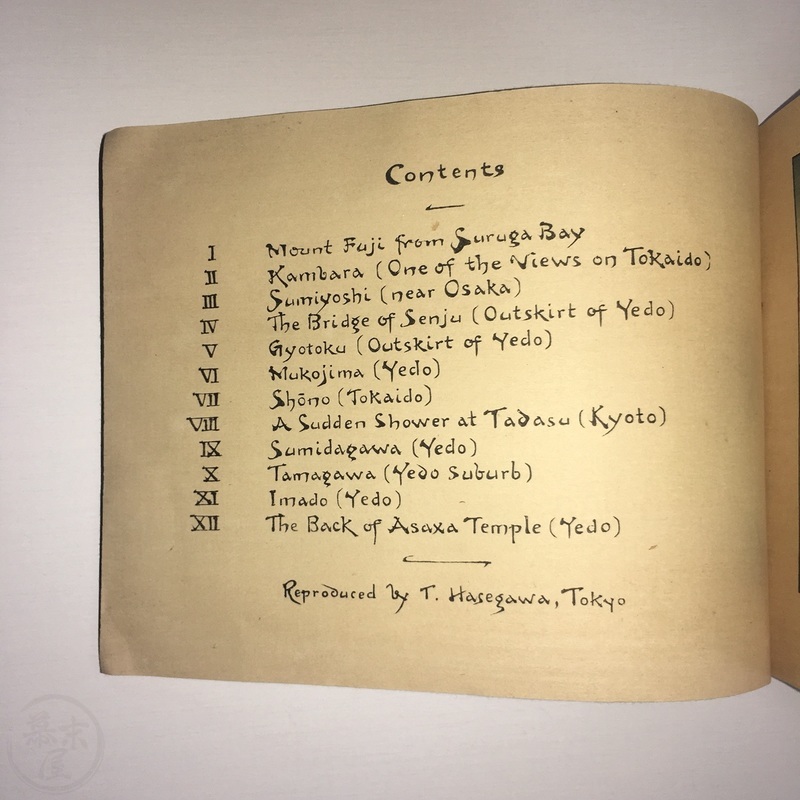 Contents
I Mount Fuji from Suruga Bay
II Kambara (One of the Views on Tokaido)
III Sumiyoshi (near Osaka)
IV The Bridge of Senju (Outskirt of Yedo)
V Gyotoku (Outskirt of Yedo)
VI Mukojima (Yedo)
VII Shōno (Tokaido)
VIII A Sudden Shower at Tadasu (Kyoto)
IX Sumidagawa (Yedo)
X Tamagawa (Yedo Suburb)
XI Imado (Yedo)
XII The Back of Asaxa Temple (Yedo)
Reproduced by T. Hasegawa, Tokyo
幕末屋